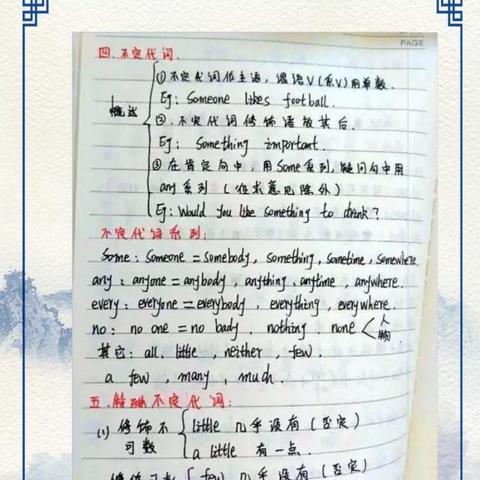 PAGE
四.不定代词.
概述
①不定代词作主语,谓语V(系V)用单数.
Eg: Someone likes football.
②.不定代词修饰语放其后.
Eg: Something important.
③在肯定句中,用Some系列,疑问句中用
any系列(征求意见除外)
Eg: Would you like something to drink?
不定代词系列:
Some: Someone = Somebody, something, sometime, somewhere.
any: anyone = anybody, anything, anytime, anywhere.
every: everyone = everybody, everything, everywhere.
no: no one = no bady, nothing, none < 人 物
其它: all, little, neither, few.
a few, many, much.
五.特殊不定代词:
(1)修饰不可数
little 几乎没有(否定)
a little 有一点.
few 几乎没有(否定)